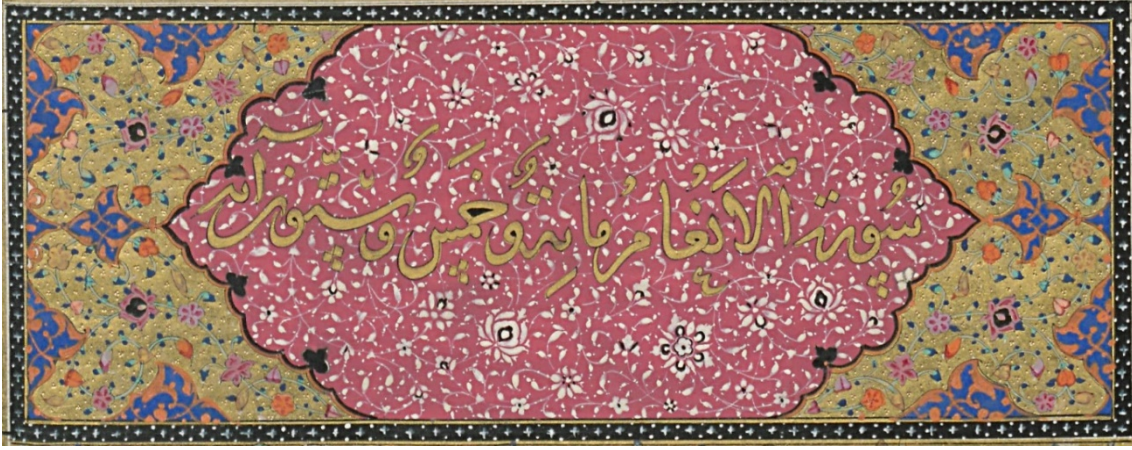 سورة الانعام ماية وخمس وستون اية